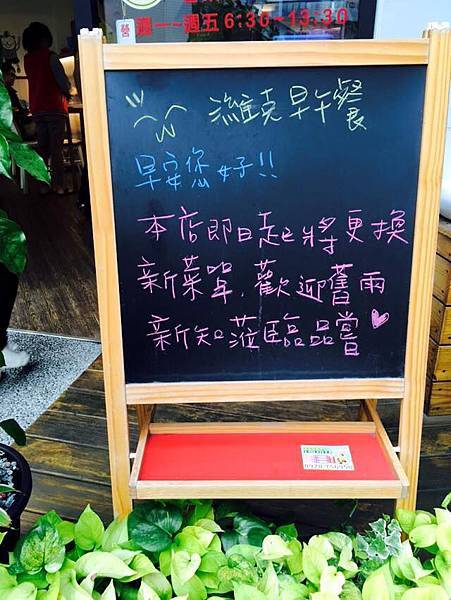 營 週一~週五6:30-13:30
濰克早午餐
早安您好!!
本店即日起將更換
新菜單,歡迎舊雨
新知蒞臨品嘗♡